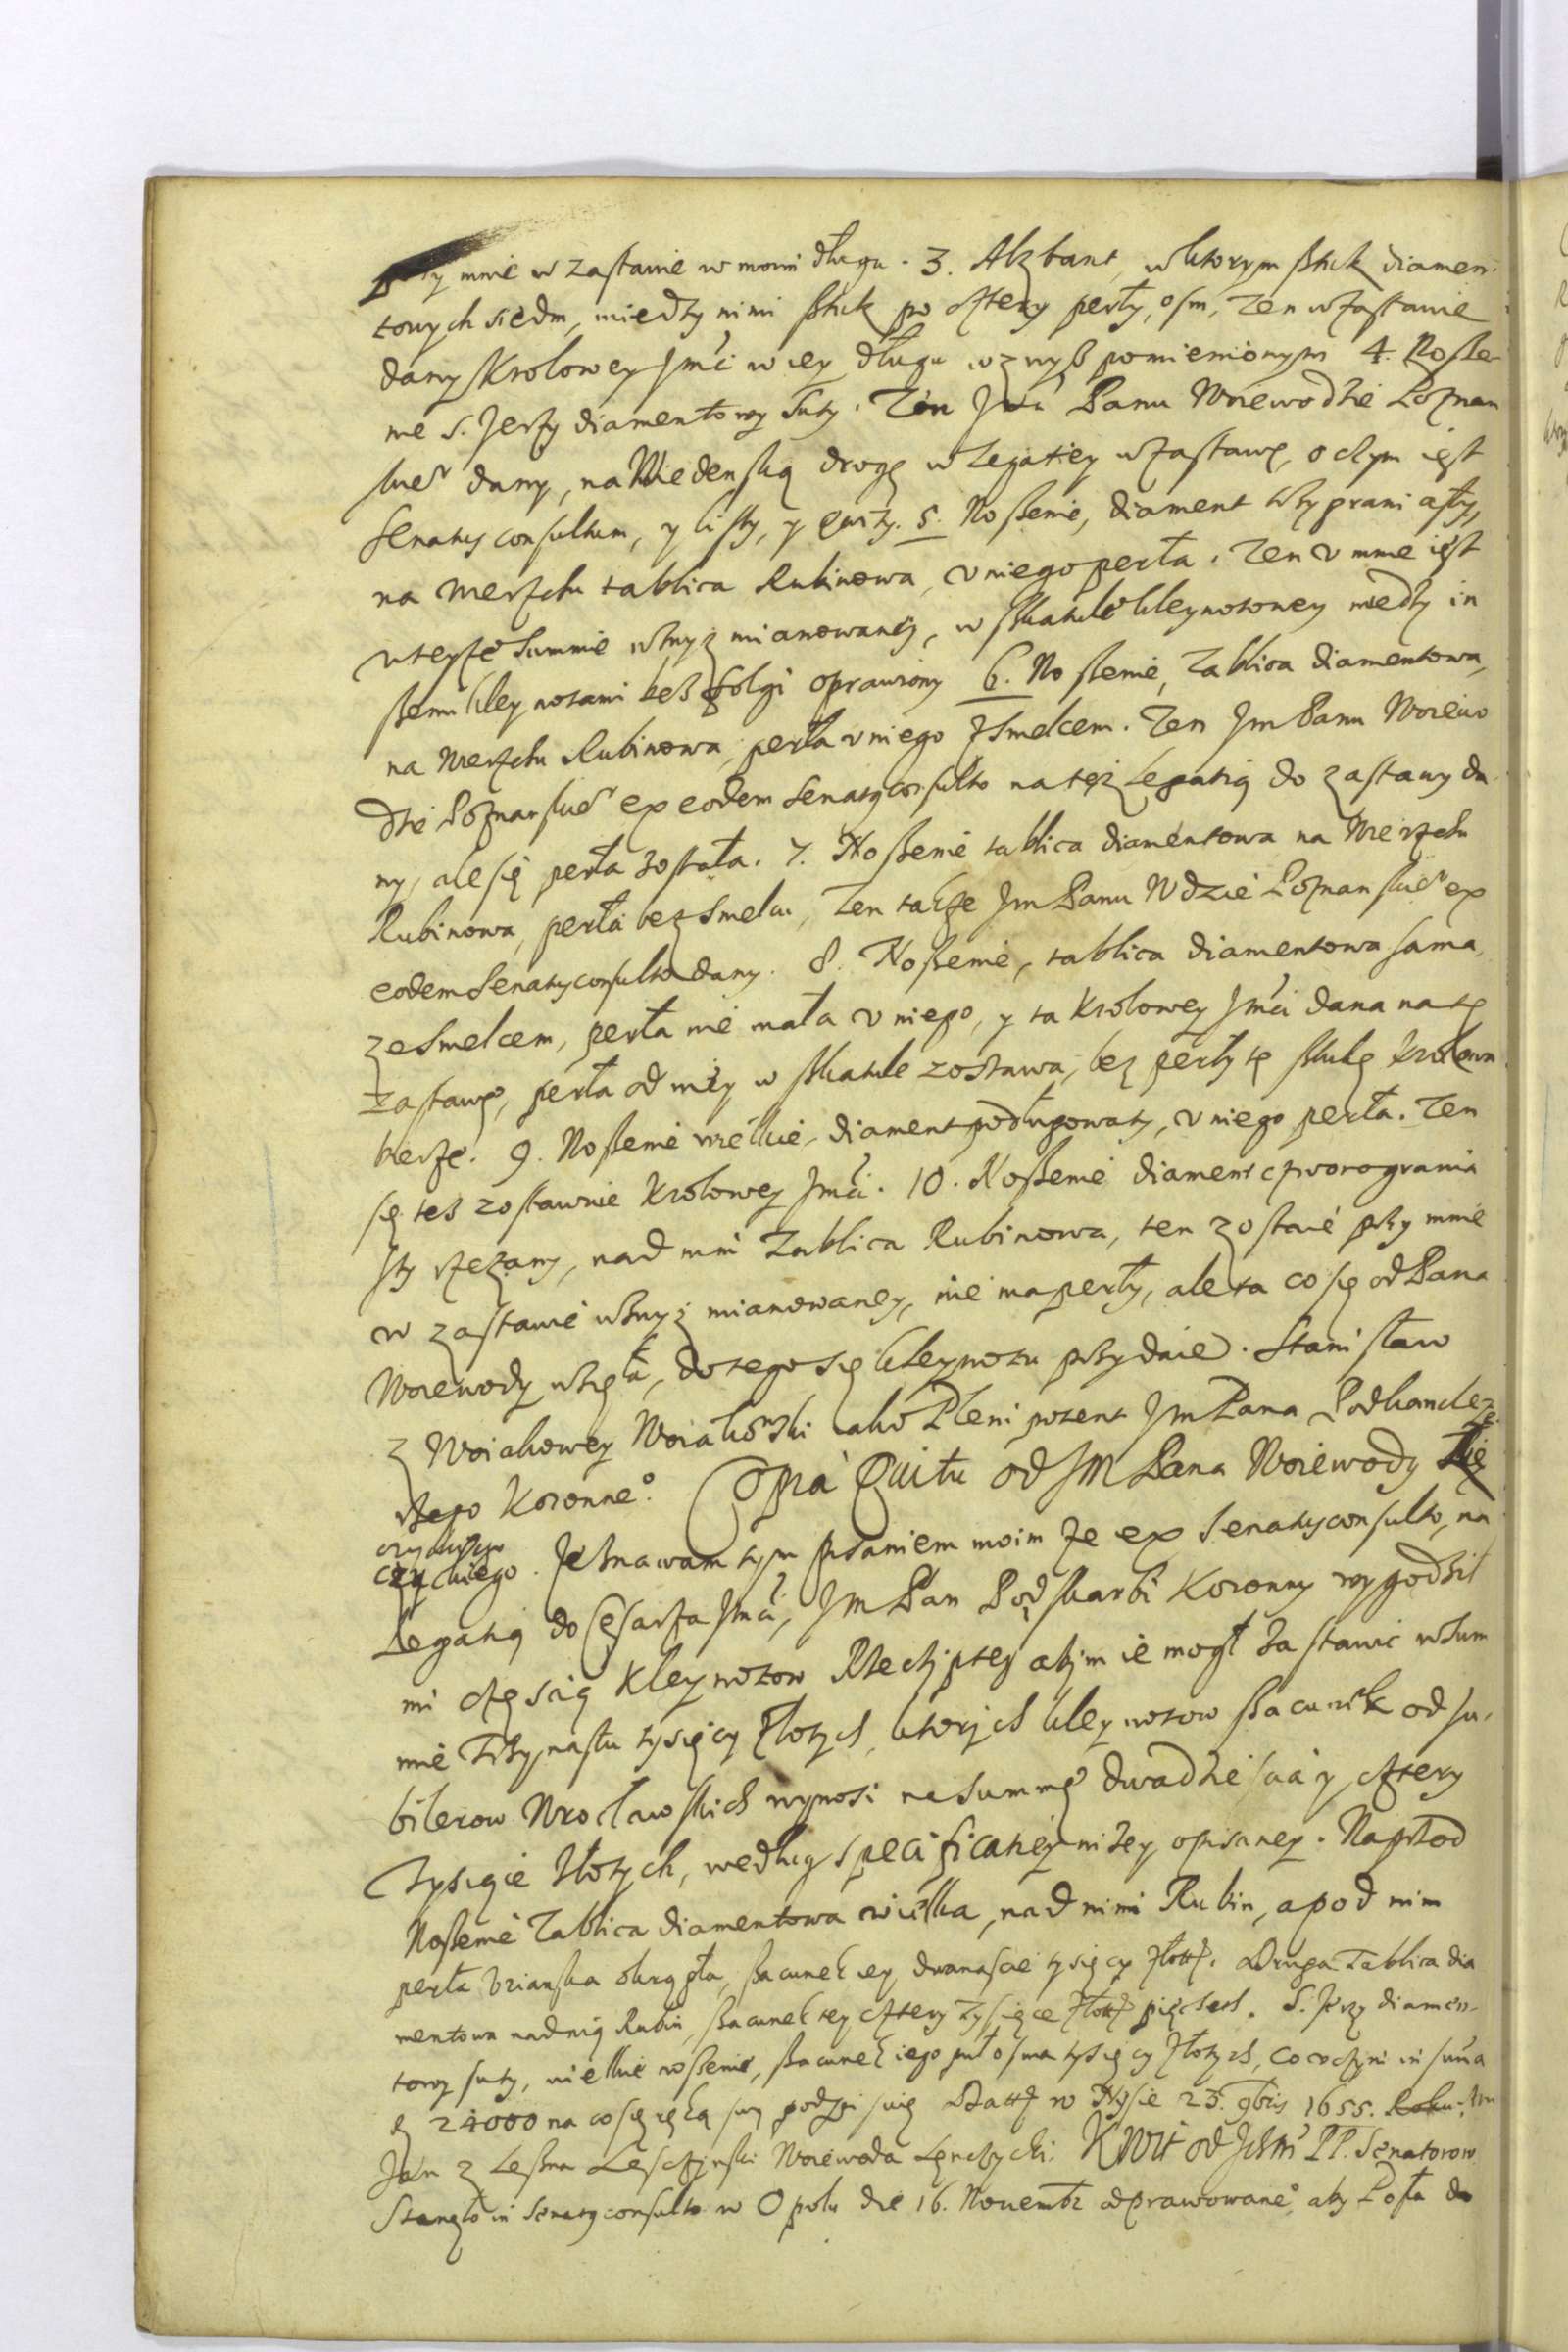 mnie w zastawie w moim długu. 3. Alzbant, w ktorym sztuk diamen-
towych siedm, miedzy nimi sztuk po cztery perły, osm, Ten w zastawie
dany Krolowey Jmći w iey długu wzwyß pomienionym 4. Noße-
nie S. Jerzy diamentowy suty. Ten Panu Woiewodzie Poznan
skie° dany, na Wiedenską drogę w Legatiey w zastawę, o czym iest
Senatus consultum, y listy, y quity. 5. Noßenie, diament trzygraniasty,
na wierzchu tablica Rubinowa, v niego perła. Ten v mnie iest
w teyże summie wzwyż mianowaney, w szkatule kleynotowey miedzy in
ßemi kleynotami beß folgi oprawiony 6. Noßenie, Tablica diamentowa,
na wierzchu Rubinowa, perła v niego z smelcem. Ten Jm Panu Woiewo
dzie Poznanskie° ex eodem Senatus consulto na też Legatią do zastawy da-
ny, ale się perła została. 7. Noßenie tablica diamentowa na wierzchu
Rubinowa, perła bez smelcu, Ten także Jm Panu Wdzie Poznanskie° ex
eodem Senatus consulto dany. 8. Noßenie, tablica diamentowa sama,
ze smelcem, perła nie mała v niego, y ta Krolowey Jmći dana na tę
zastawę, perła od niey w szkatule zostawa, bez perły tę sztukę Krolowa
bierze. 9. Noßenie wielkie, diament podługowaty, v niego perła. Ten
się teß zostawuie Krolowey Jmći. 10. Noßenie diament czworograniá
sty rzezany, nad nim Tablica Rubinowa, ten zostaie przy mnie
w zastawie wzwyż mianowaney, nie ma perły, ale ta co się od Pana
Woiewody wzięła, do tego się kleynotu przydaie. Stanisław
z Woiakowey Woiakowski iako Plenipotent Jm Pana Podkancle
rzego Koronne°. Copia Quitu od JM Pana Woiewody
czyckiego. Zeznawam tym pisaniem moim że ex Senatus consulto, na
Legatią do Cesarza Jmći, JM Pan Podskarbi Koronny wygodził
mi częścią kleynotow Rzeczyptey abym ie mogł zastawić w sum
mie trzynastu tysięcy złotych, ktorych kleynotow ßacunek od ju-
bilerow Wrocławskich wynosi na summę dwadzieścia y cztery
Tysiące złotych, według specificatiey niżey opisaney. Naprzod
Noßenie Tablica diamentowa wielka, nad nimi Rubin, a pod nim
perła Vrianska okrągła, ßacunek iey dwanaście tysięcy złott. Druga Tablica dia
mentowa nad nią Rubin, ßacunek iey cztery Tysiące złott pięćset. S. Jerzy diamen-
towy suty, wielkie noßenie, ßacunek iego puł osma tysięcy złotych, co vczyni in suma
24000 na co się ręką swą podpisuię Datt w Nysie 23. 9bris 1655.
Jan z Leßna Lesczynski Woiewoda Lęnczycki. Kwit od Jchm PP. Senatorow
Stanęło in Senatus consulto w Opolu die 16. Novembr odprawowane°, aby